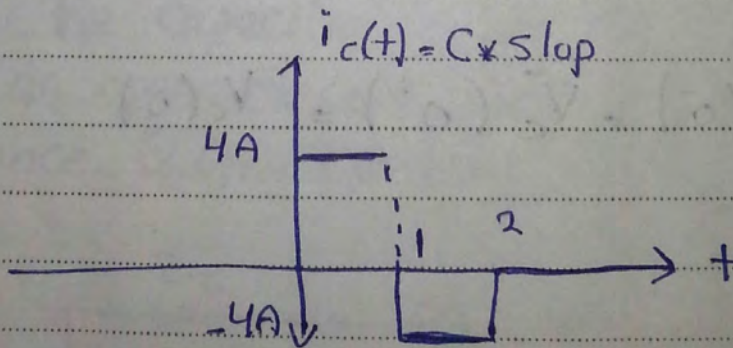 i c(t) = C x slop
4A
1 2
t
-4A